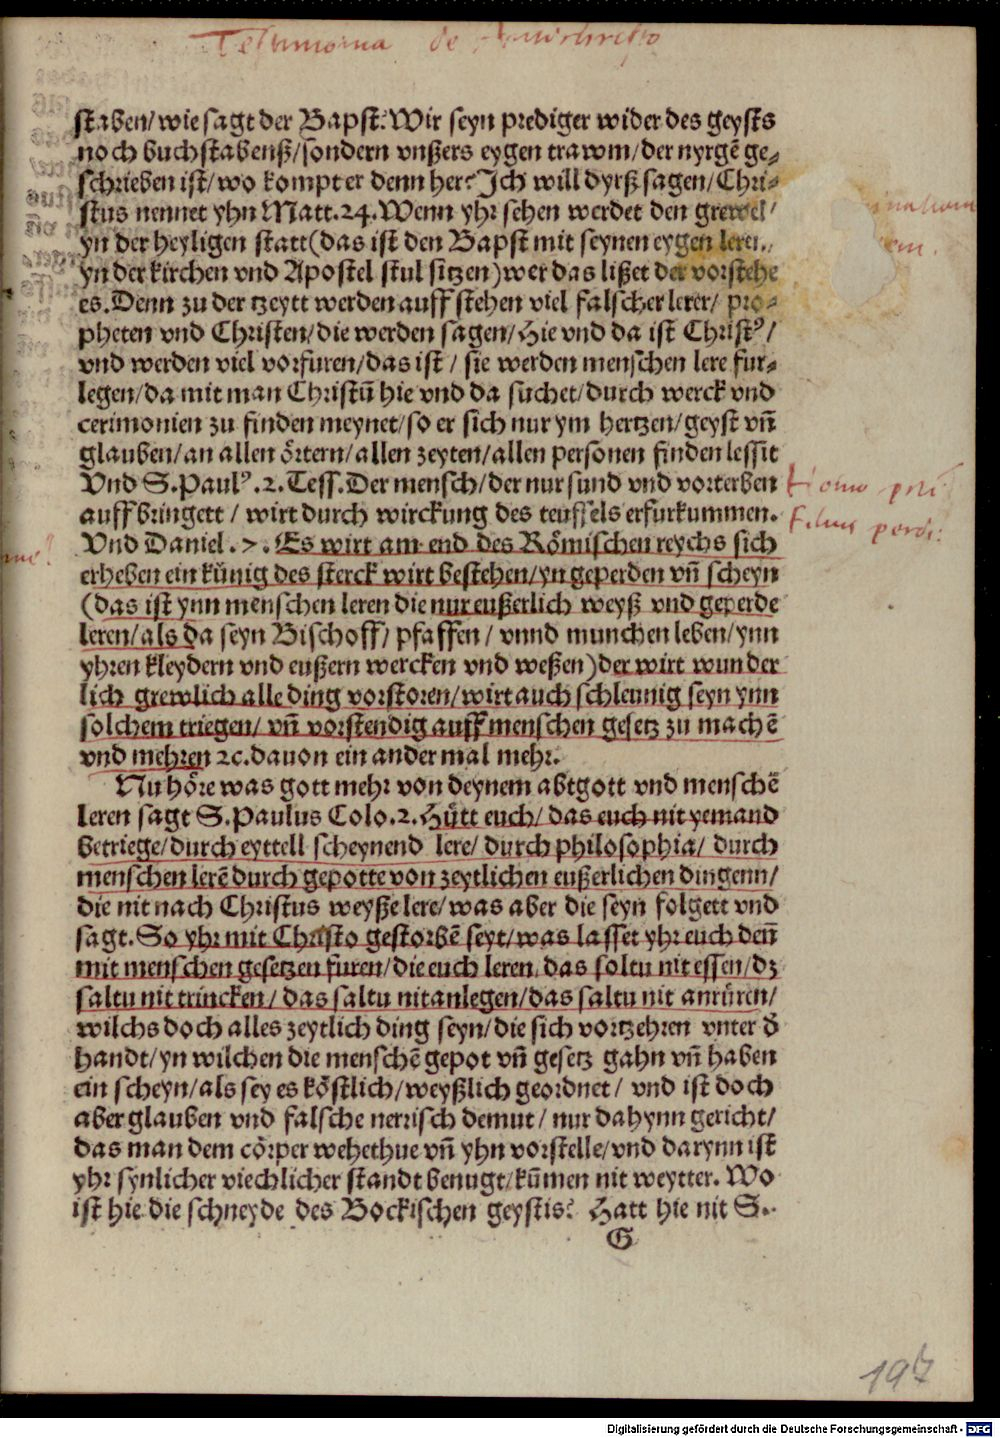 Testimonia de Antichristo
staben/ wie sagt der Bapst: Wir seyn prediger wider des geysts
noch buchstabenß/ sondern vnßers eygen trawm/ der nyrgē ge⸗
schrieben ist/ wo kompt er denn her? Jch will dyrß sagen/ Chri⸗
stus nennet yhn Matt. 24. Wenn yhr sehen werdet den grewel/
yn der heyligen statt (das ist den Bapst mit seynen eygen leren/
yn der kirchen vnd Apostel stul sitzen) wer das lißet der vorstehe
es. Denn zu der tzeytt werden auff stehen viel falscher lerer/ pro⸗
pheten vnd Christen/ die werden sagen/ Hie vnd da ist Christꝰ/
vnd werden viel vorfuren/ das ist/ sie werden menschen lere fur⸗
legen/ da mit man Christū hie vnd da suchet/ durch werck vnd
cerimonien zu finden meynet/ so er sich nur ym hertzen/ geyst vn̄
glauben/ an allen örtern/ allen zeyten/ allen personen finden lessit
Vnd S. Paulꝰ. 2. Tess. Der mensch/ der nur sund vnd vorterben
Homo
auffbringett/ wirt durch wirckung des teuffels erfurkummen.
Filius perdi:
Vnd Daniel. 7. Es wirt am end des Römischen reychs sich
erheben ein künig des sterck wirt bestehen/ yn geperden vn̄ scheyn
(das ist ynn menschen leren die nur eußerlich weyß vnd geperde
leren/ als da seyn Bischoff/ pfaffen/ vnnd munchen leben/ ynn
yhren kleydern vnd eußern wercken vnd weßen) der wirt wunder
lich grewlich alle ding vorstoren/ wirt auch schleunig seyn ynn
solchem triegen/ vn̄ vorstendig auff menschen gesetz zu machē
vnd mehren ꝛc. dauon ein ander mal mehr.
Nu höre was gott mehr von deynem abtgott vnd menschē
leren sagt S. Paulus Colo. 2. Hütt euch/ das euch nit yemand
betriege/ durch eyttell scheynend lere/ durch philosophia/ durch
menschen lerē durch gepotte von zeytlichen eußerlichen dingenn/
die nit nach Christus weyße lere/ was aber die seyn folgett vnd
sagt. So yhr mit Christo gestorbē seyt/ was lasset yhr euch deñ
mit menschen gesetzen furen/ die euch leren, das soltu nit essen/ dz
saltu nit trincken/ das saltu nit anlegen/ das saltu nit anrüren/
wilchs doch alles zeytlich ding seyn/ die sich vortzehren vnter d̕
handt/ yn wilchen die menschē gepot vn̄ gesetz gahn vn̄ haben
ein scheyn/ als sey es köstlich/ weyßlich geordnet/ vnd ist doch
aber glauben vnd falsche nerrisch demut/ nur dahynn gericht/
das man dem cörper wehe thue vn̄ yhn vorstelle/ vnd darynn ist
yhr synlicher viechlicher standt benugt/ kūmen nit weytter. Wo
ist hie die schneyde des Bockischen geystis? Hatt hie nit S.
G
197
Digitalisierung gefördert durch die Deutsche Forschungsgemeinschaft - DFG